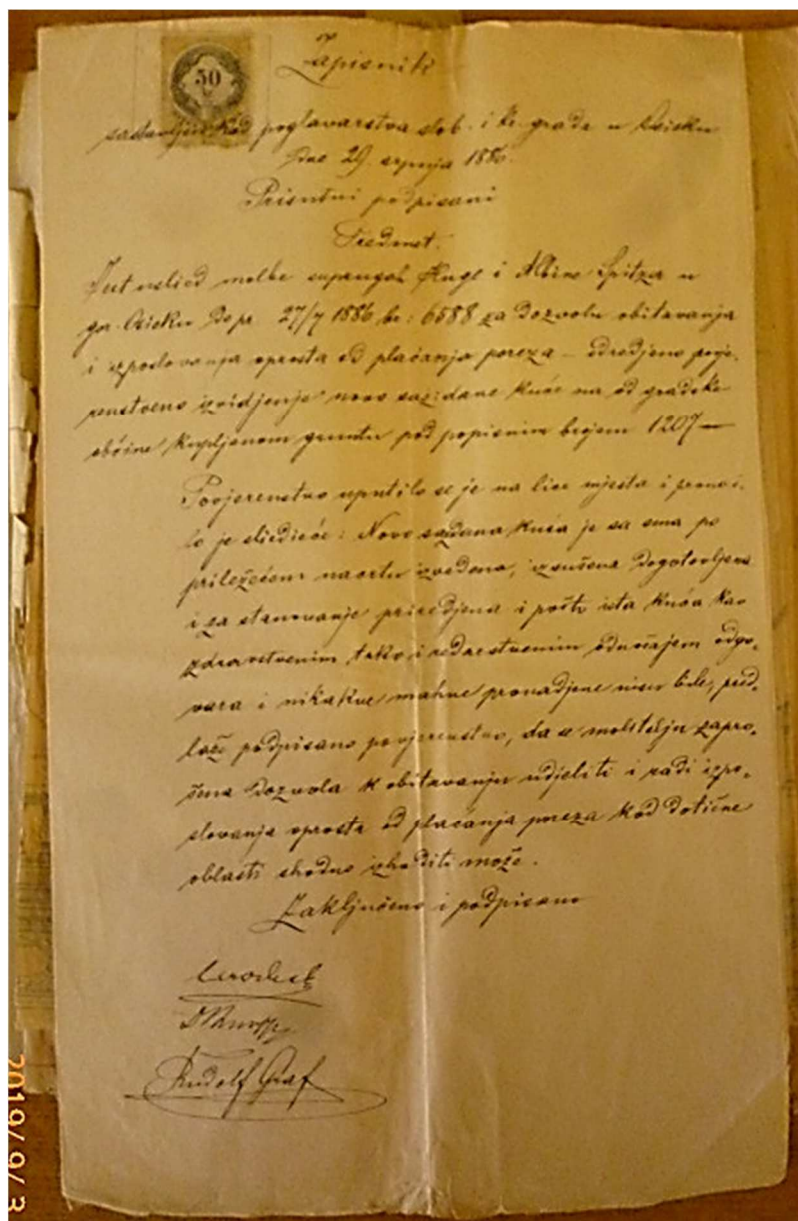 50
Zapisnik
sastavljen kod poglavarstva slob. i kr. grada u Osieku
dne 29 srpnja 1886.
Prisutni podpisani
Predmet.
Jest uslied molbe suprugah Huge i Albine Spitzer u
gor. Osieku de pr. 27/7 1886 br: 6588 za dozvolu obitavanja
i izposlovanja oprosta od plaćanja poreza – odredjeno povje-
renstveno izvidjenje novo sazidane kuće na od gradske
občine kupljenom gruntu pod popisnim brojem 1207 —
Povjerenstvo uputilo se je na lice mjesta i pronaš-
lo je sliedeće: Novo sazidana kuća je sa sma po
priležećem nacrtu izvedena, izsušena dogotovljena
i za stanovanje priredjena i pošto ista kuća kao
zdravstvenim tako i redarstvenim odnošajem odgo-
vara i nikakve mahne pronadjene nisu bile, pred-
laže podpisano povjerenstvo, da se molitelju zapro-
šena dozvola k obitavanju udjeliti i radi izpo-
slovanja oprosta od plaćanja poreza kod dotične
oblasti shodno izhoditi može.
Zaključeno i podpisano
Rudolf Graf
2019/9/3